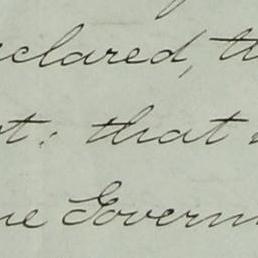 clared, th
t: that
he Govern